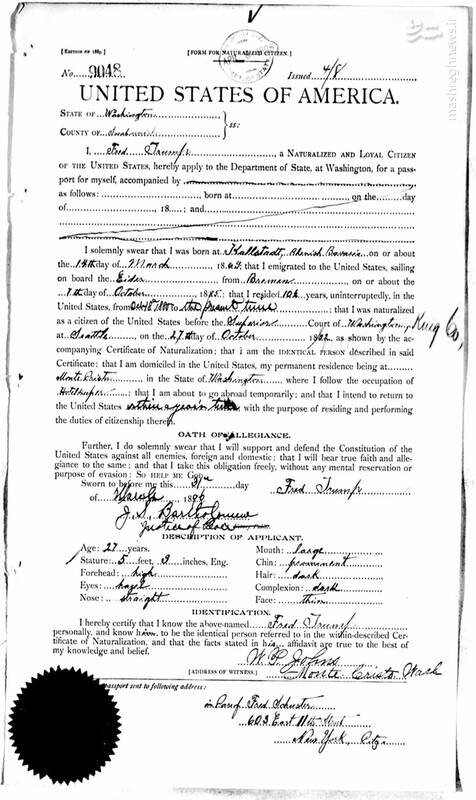 mashreghnews.ir
[EDITION OF 1889.] [FORM FOR NATURALIZED CITIZEN.]
No. 9048 Issued 4/8
UNITED STATES OF AMERICA.
STATE OF Washington
COUNTY OF Snohomish } ss:
I, Fred Trump, a NATURALIZED AND LOYAL CITIZEN
OF THE UNITED STATES, hereby apply to the Department of State, at Washington, for a pass-
port for myself, accompanied by
as follows: , born at on the day
of , 18 ; and
I solemnly swear that I was born at Kallstadt, Rhenish Bavaria on or about
the 14th day of March, 1869; that I emigrated to the United States, sailing
on board the Eider from Bremen, on or about the
7th day of October 1885; that I resided 10½ years, uninterruptedly, in the
United States, from to the present time; that I was naturalized
as a citizen of the United States before the Superior Court of Washington, King Co,
at Seattle, on the 27th day of October 1892, as shown by the ac-
companying Certificate of Naturalization; that I am the IDENTICAL PERSON described in said
Certificate; that I am domiciled in the United States, my permanent residence being at
Monte Cristo, in the State of Washington where I follow the occupation of
Hotelkeeper; that I am about to go abroad temporarily; and that I intend to return
to the United States with the purpose of residing and performing
the duties of citizenship therein.
OATH OF ALLEGIANCE.
Further, I do solemnly swear that I will support and defend the Constitution of the
United States against all enemies, foreign and domestic; that I will bear true faith and alle-
giance to the same; and that I take this obligation freely, without any mental reservation or
purpose of evasion: SO HELP ME GOD.
Sworn to before me this day Fred Trump
of March, 1896
Justice of
DESCRIPTION OF APPLICANT.
Age: 27 years. Mouth: large
Stature: 5 feet, 9 inches, Eng. Chin: prominent
Forehead: high Hair: dark
Eyes: hazel Complexion: dark
Nose: straight Face: thin
IDENTIFICATION.
I hereby certify that I know the above-named Fred Trump
personally, and know him to be the identical person referred to in the within-described Cer-
tificate of Naturalization, and that the facts stated in his affidavit are true to the best of
my knowledge and belief.
[ADDRESS OF WITNESS.] Monte Cristo Wash
passport sent to following address:
in care of Fred Schuster
603 East 11th Street
New York, City